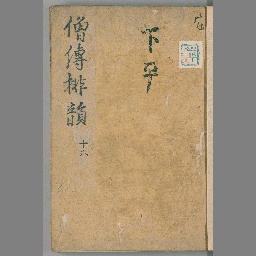 下平
僧傳排韻
十六